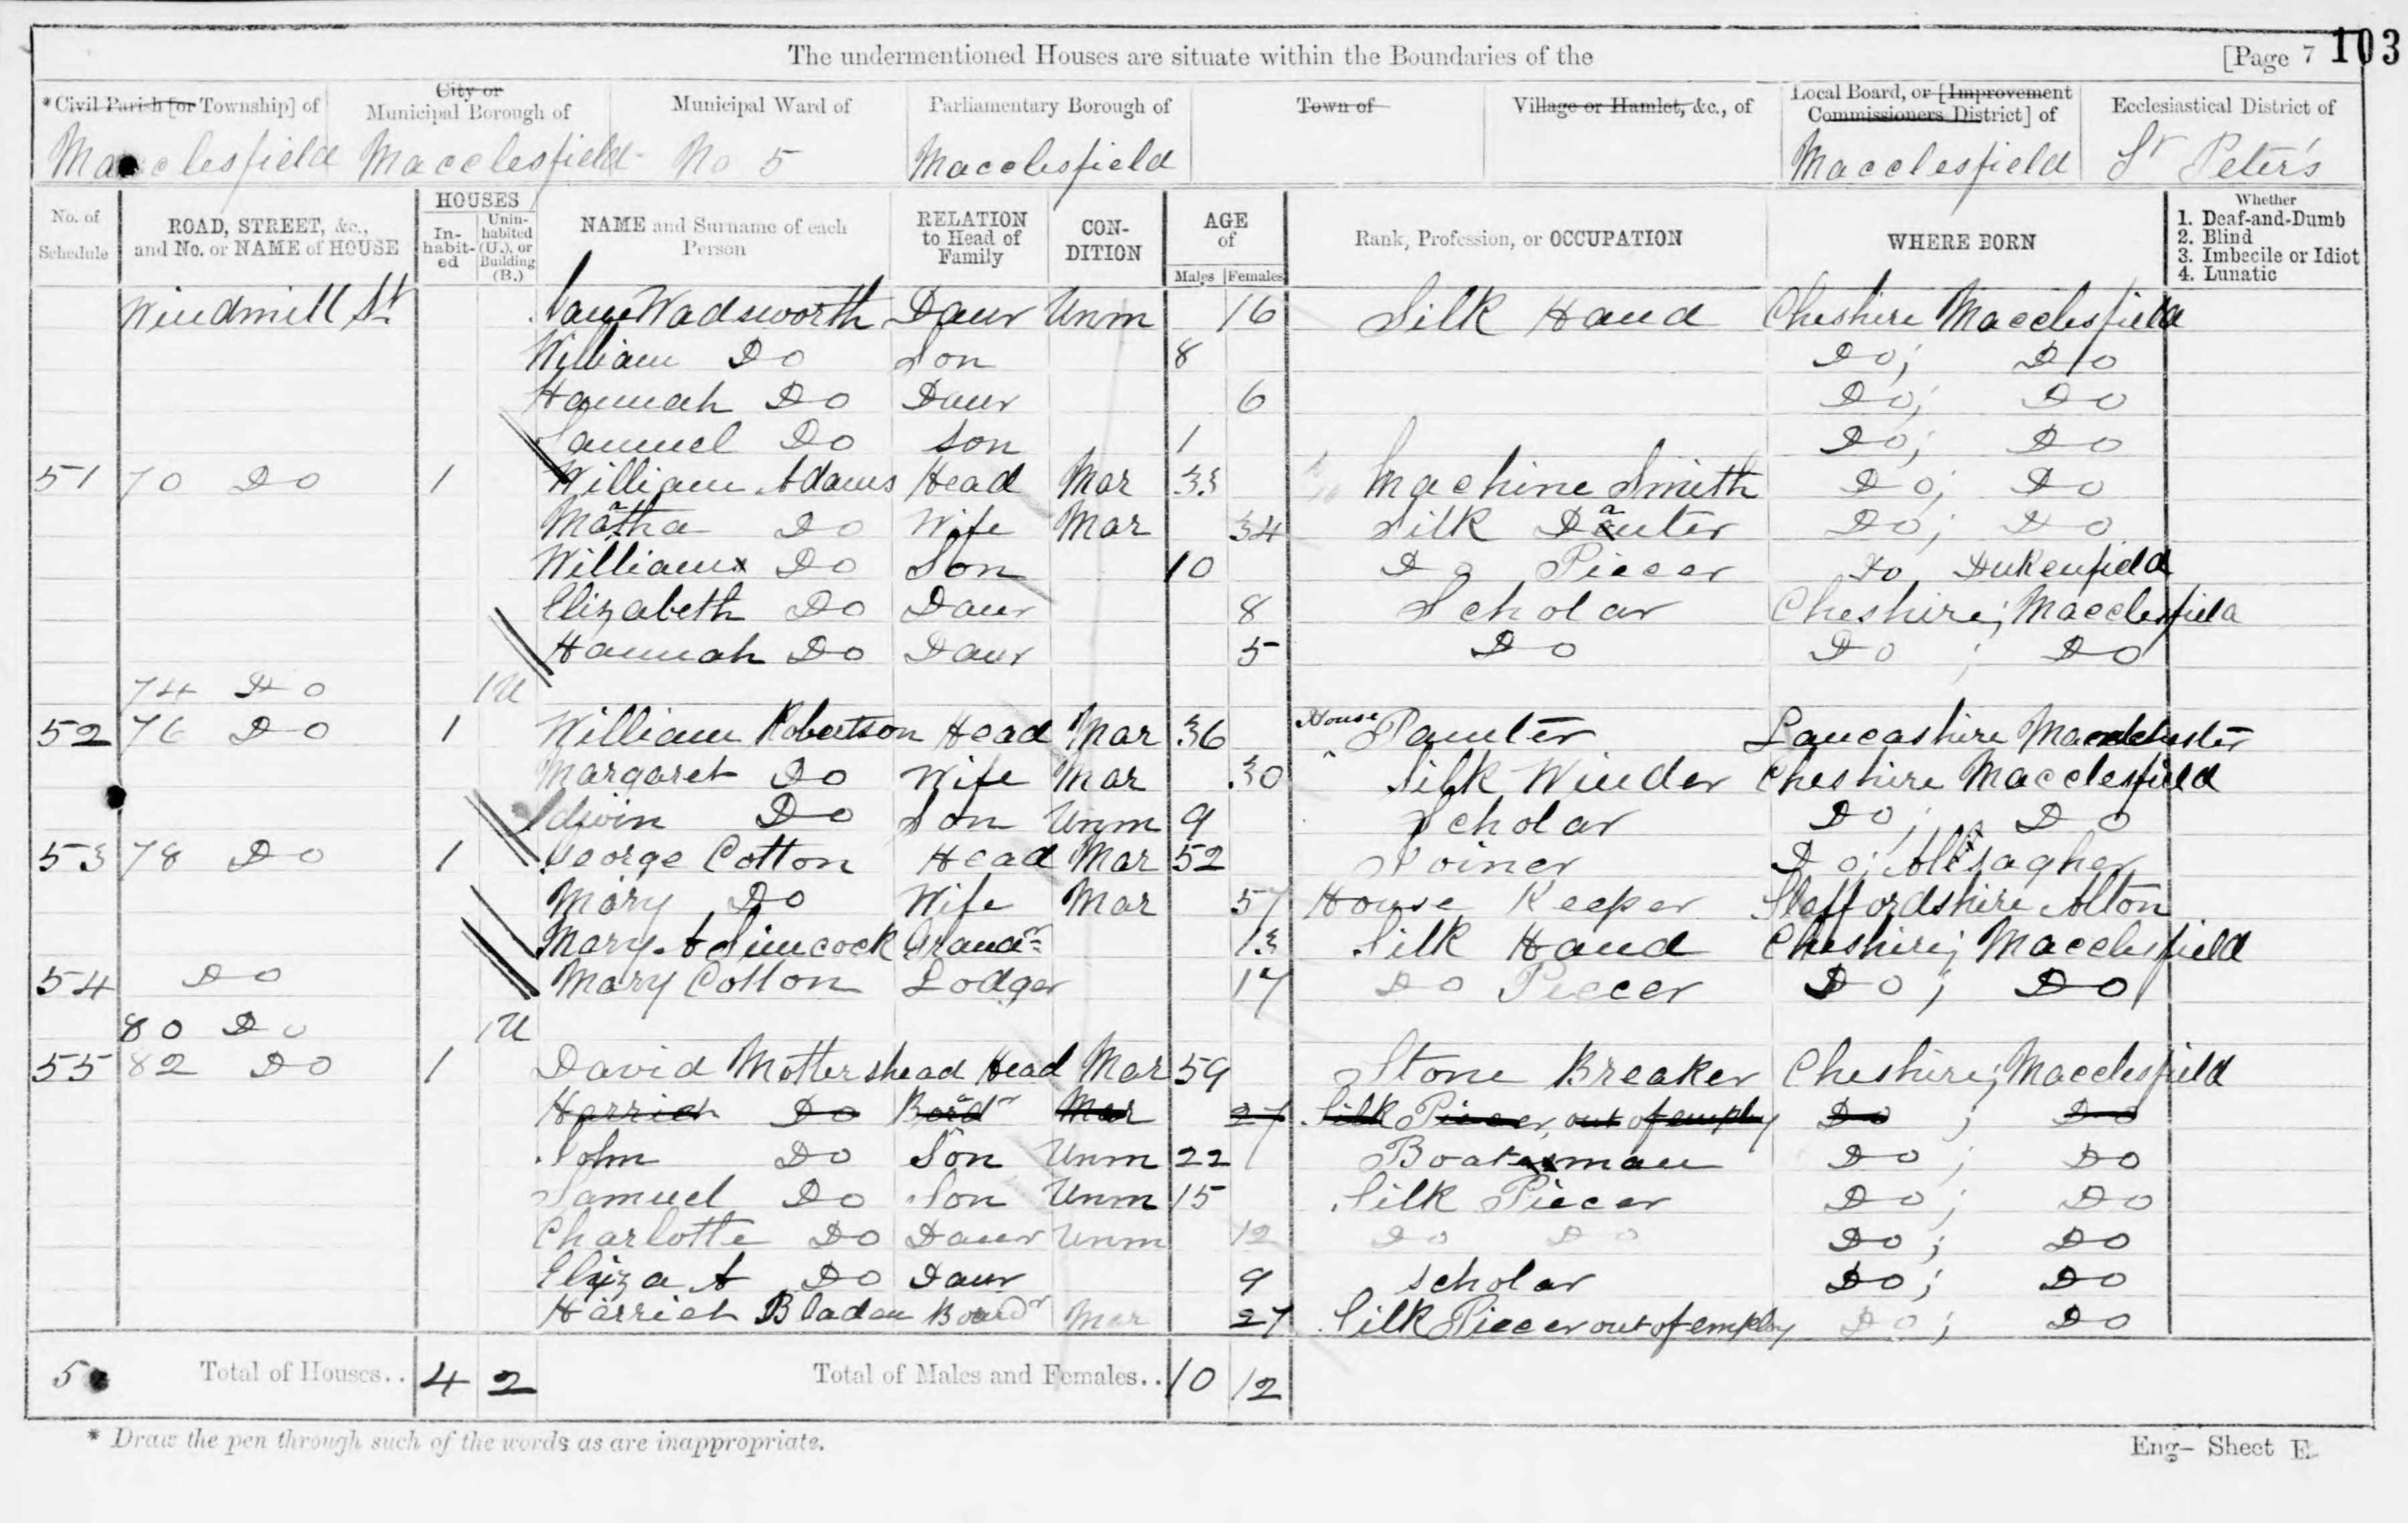 The undermentioned Houses are situate within the Boundaries of the [Page 7 103
*Civil Parish [or Township] of City or Municipal Borough of Municipal Ward of Parliamentary Borough of Town of Village or Hamlet, &c., of Local Board, or [Improvement Commissioners District] of Ecclesiastical District of
Macclesfield Macclesfield No 5 Macclesfield Macclesfield St Peter's
No. of Schedule ROAD, STREET, &c., and No. or NAME of HOUSE HOUSES In-habit-ed Unin-habited (U.), or Building (B.) NAME and Surname of each Person RELATION to Head of Family CON-DITION AGE of Males Females Rank, Profession, or OCCUPATION WHERE BORN Whether 1. Deaf-and-Dumb 2. Blind 3. Imbecile or Idiot 4. Lunatic
Windmill St Wadsworth Daur Unm 16 Silk Hand Cheshire Macclesfield
William Do Son 8 Do; Do
Hannah Do Daur 6 Do; Do
Samuel Do Son 1 Do; Do
51 70 Do 1 William Adams Head Mar 33 Machine Smith Do; Do
Martha Do Wife Mar 34 Silk Do; Do
William Do Son 10 Do Piecer Do Dukenfield
Elizabeth Do Daur 8 Scholar Cheshire; Macclesfield
Hannah Do Daur 5 Do Do; Do
74 Do 1U
52 76 Do 1 William Robertson Head Mar 36 House Painter Lancashire Manchester
Margaret Do Wife Mar 30 Silk Winder Cheshire Macclesfield
Edwin Do Son Unm 9 Scholar Do; Do
53 78 Do 1 George Cotton Head Mar 52 Joiner Do; Alsagher
Mary Do Wife Mar 57 House Keeper Staffordshire Alton
Mary A Simcock Grandr 13 Silk Hand Cheshire; Macclesfield
54 Do Mary Cotton Lodger 17 Do Piecer Do; Do
80 Do 1U
55 82 Do 1 David Mottershead Head Mar 59 Stone Breaker Cheshire; Macclesfield
Harriet Do Bord Mar 27 Silk Piecer, out of employ Do; Do
John Do Son Unm 22 Boatman Do; Do
Samuel Do Son Unm 15 Silk Piecer Do; Do
Charlotte Do Daur Unm 12 Do Do Do; Do
Eliza A Do Daur 9 Scholar Do; Do
Harriet Bladen Boardr Mar 27 Silk Piecer out of employ Do; Do
5 Total of Houses.. 4 2 Total of Males and Females.. 10 12
* Draw the pen through such of the words as are inappropriate. Eng- Sheet E.